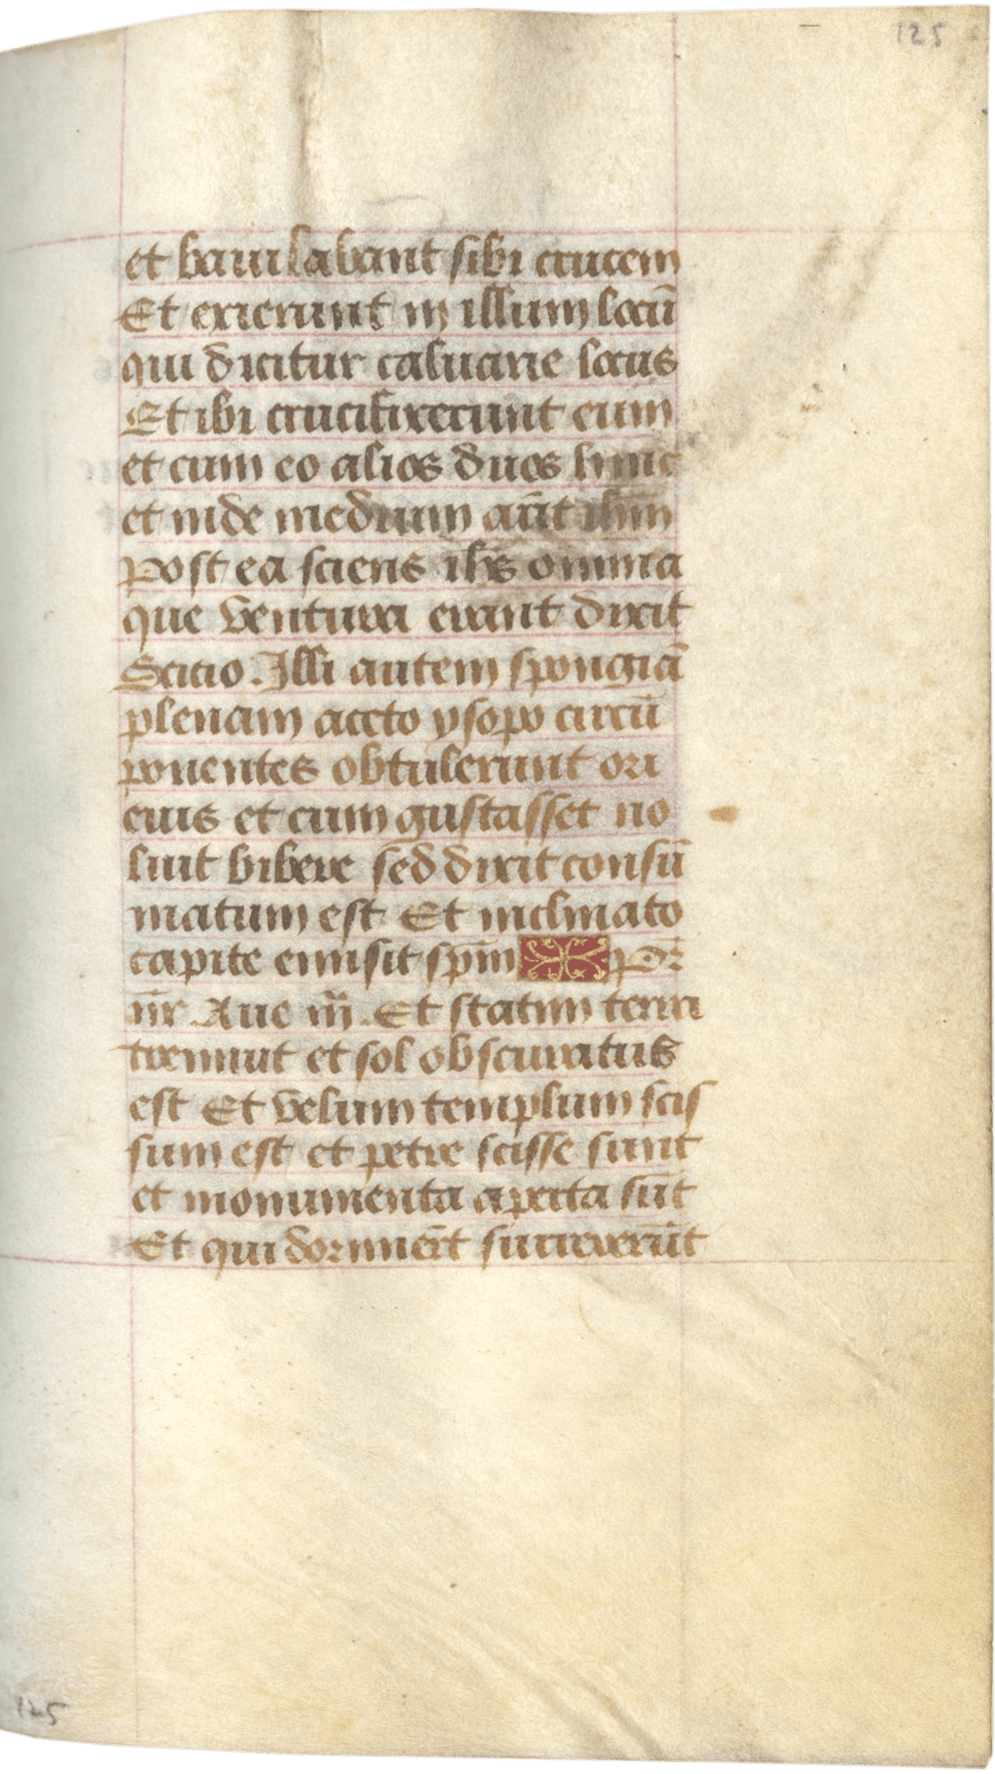 125
et baiulabant sibi crucem
Et exierunt in illum locū
qui dicitur caluarie locus
Et ibi crucifixerunt eum
et cum eo alios duos hinc
et inde medium aūt ihm
Post ea sciens ihs omnia
que ventura erant dixit
Scitio. Illi autem spongiā
plenam aceto ysopo circū
ponentes obtulerunt ori
eius et cum gustasset no
luit bibere sed dixit consū
matum est Et inclinato
capite emisit spm̄ Pr̄
nr̄ Aue m̄. Et statim terra
tremuit et sol obscuratus
est Et velum templum scis
sum est et petre scisse sunt
et monumenta aperta sūt
Et qui dormierūt surrexerūt
125